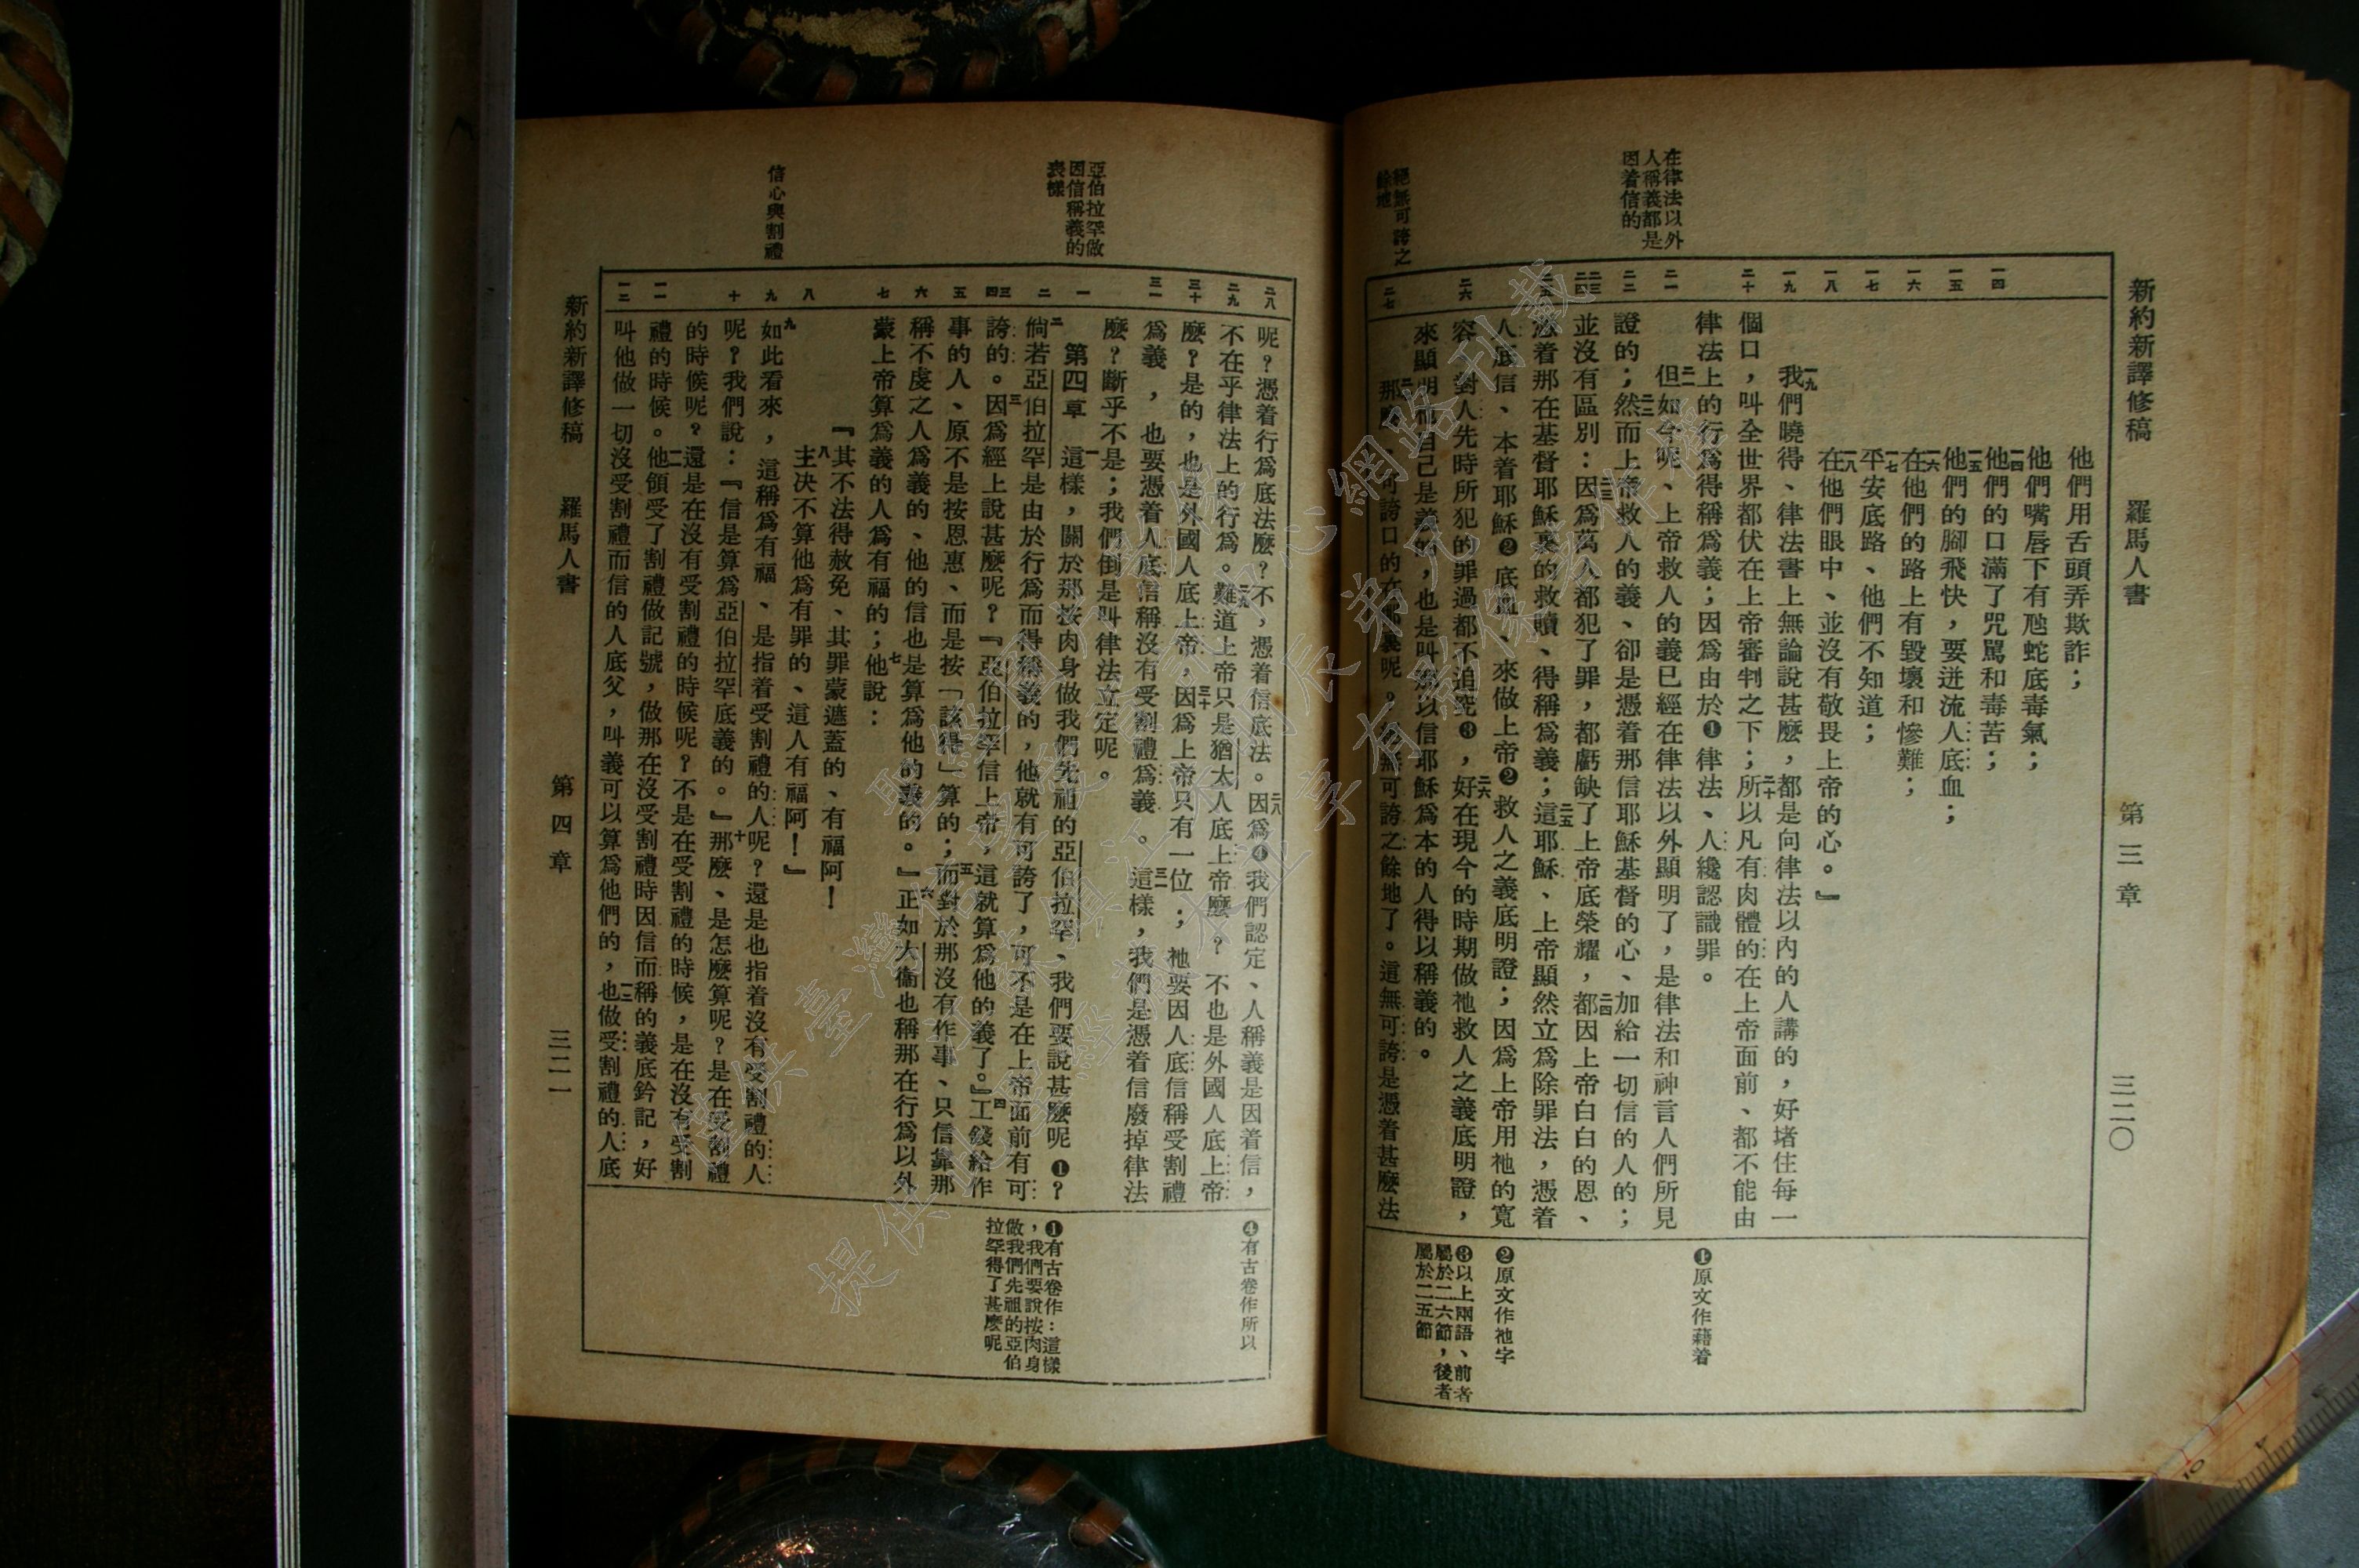 新約新譯修稿　羅馬人書　第三章　三二〇
在律法以外
人稱義都是
因着信的
絕無可誇之
餘地
一四
一五
一六
一七
一八
一九
二十
二一
二二
二三
二四
二五
二六
二七
他們用舌頭弄欺詐；
他們嘴唇下有虺蛇底毒氣；
一四他們的口滿了咒罵和毒苦；
一五他們的腳飛快，要迸流人底血；
一六在他們的路上有毀壞和慘難；
一七平安底路、他們不知道；
一八在他們眼中、並沒有敬畏上帝的心。』
一九我們曉得、律法書上無論說甚麼，都是向律法以內的人講的，好堵住每一
個口，叫全世界都伏在上帝審判之下；二十所以凡有肉體的在上帝面前、都不能由
律法上的行爲得稱爲義；因爲由於❶律法、人纔認識罪。
二一但如今呢、上帝救人的義已經在律法以外顯明了，是律法和神言人們所見
證的；二二然而上帝救人的義、卻是憑着那信耶穌基督的心、加給一切信的人的；
並沒有區別：二三因爲萬人都犯了罪，都虧缺了上帝底榮耀，二四都因上帝白白的恩、
憑着那在基督耶穌裏的救贖、得稱爲義；二五這耶穌、上帝顯然立爲除罪法，憑着
人底信、本着耶穌❷底血、來做上帝❷救人之義底明證；因爲上帝用祂的寬
容、對人先時所犯的罪過都不追究❸，二六好在現今的時期做祂救人之義底明證，
來顯明祂自己是義的，也是叫那以信耶穌爲本的人得以稱義的。
二七那麼、可誇口的在哪裏呢？絕無可誇之餘地了。這無可誇是憑着甚麼法
❶原文作藉着
❷原文作祂字
❸以上兩語、前者
屬於二六節，後者
屬於二五節
二八
二九
三十
三一
一
二
三
四
五
六
七
八
九
十
一一
一二
亞伯拉罕做
因信稱義的
表樣
信心與割禮
呢？憑着行爲底法麼？不，憑着信底法。二八因爲❹我們認定、人稱義是因着信，
不在乎律法上的行爲。二九難道上帝只是猶太人底上帝麼？不也是外國人底上帝
麼？是的，也是外國人底上帝，三十因爲上帝只有一位；祂要因人底信稱受割禮
爲義，也要憑着人底信稱沒有受割禮爲義。三一這樣，我們是憑着信廢掉律法
麼？斷乎不是；我們倒是叫律法立定呢。
第四章　一這樣，關於那按肉身做我們先祖的亞伯拉罕、我們要說甚麼呢❶？
二倘若亞伯拉罕是由於行爲而得稱義的，他就有可誇了，可不是在上帝面前有可
誇的。三因爲經上說甚麼呢？『亞伯拉罕信上帝，這就算爲他的義了。』四工錢給作
事的人、原不是按恩惠、而是按「該得」算的；五而對於那沒有作事、只信靠那
稱不虔之人爲義的、他的信也是算爲他的義的。』六正如大衞也稱那在行爲以外
蒙上帝算爲義的人爲有福的；七他說：
『其不法得赦免、其罪蒙遮蓋的、有福阿！
八主決不算他爲有罪的、這人有福阿！』
九如此看來，這稱爲有福、是指着受割禮的人呢？還是也指着沒有受割禮的人
呢？我們說：『信是算爲亞伯拉罕底義的。』十那麼、是怎麼算呢？是在受割禮
的時候呢？還是在沒有受割禮的時候呢？不是在受割禮的時候，是在沒有受割
禮的時候。一一他領受了割禮做記號，做那在沒受割禮時因信而稱的義底鈐記，好
叫他做一切沒受割禮而信的人底父，叫義可以算爲他們的，一二也做受割禮的人底
❹有古卷作所以
❶有古卷作：這樣
，我們要說按肉身
做我們先祖的亞伯
拉罕得了甚麼呢
新約新譯修稿　羅馬人書　第四章　三二一